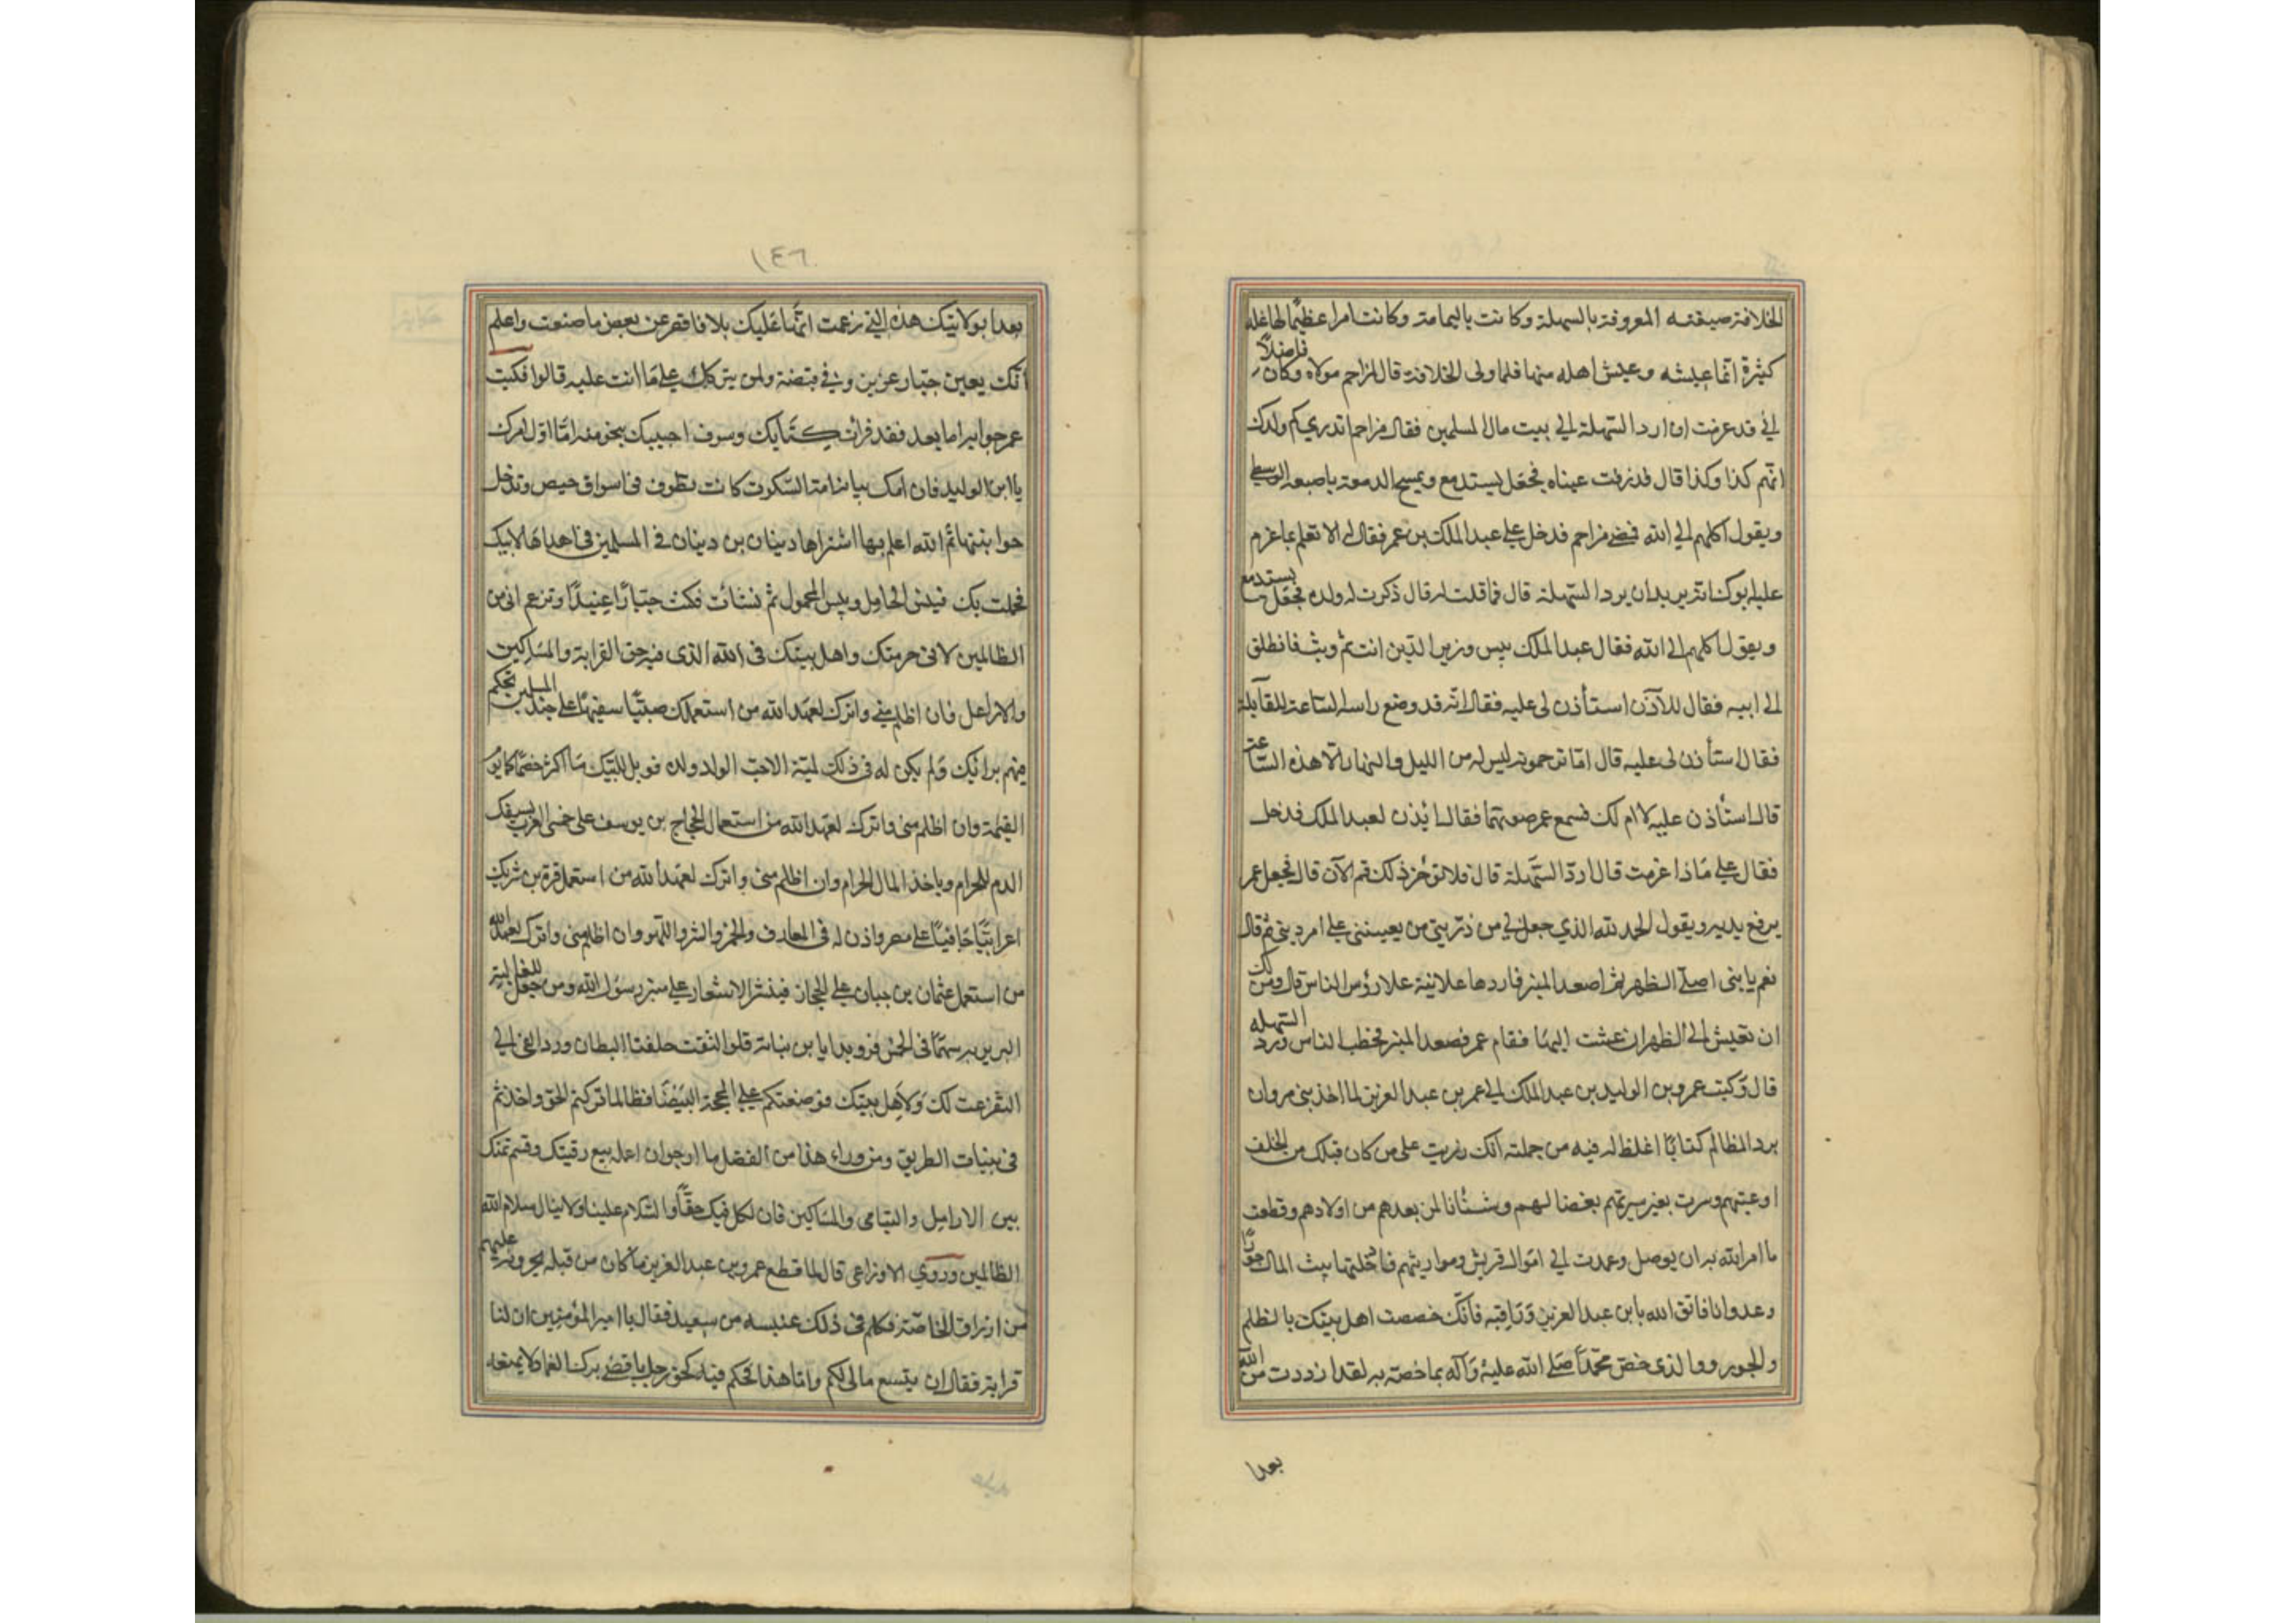 الخلافة ضيعته المعروفة بالسهلة وكانت باليمامة وكانت امرا عظيما لها غلة
كثيرة انما عيشه وعيش اهله منها فلما ولى الخلافة قال لمزاحم مولاه وكان فاضلاً
اني قد عزمت ان ارد السهلة الي بيت مال المسلمين فقال مزاحم اتدري كم ولدك
انهم كذا وكذا قال فذرفت عيناه فجعل يستدمع ويمسح الدمعة باصبعه الوسطي
ويقول اكلهم الي الله فمضي مزاحم فدخل علي عبد الملك بن عمر فقال له الا تعلم بما عزم
عليه ابوك انه يريد ان يرد السهلة قال فما قلت له قال ذكرت له ولده فجعل يستدمع
ويقول اكلهم الى الله فقال عبد الملك بيس وزير الدين انت ثم وثب فانطلق
الى ابيه فقال للآذن استأذن لى عليه فقال انه قد وضع راسه الساعة للقايلة
فقال استأذن لى عليه قال اما ترحمونه ليس له من الليل والنهار الا هذه الساعة
قال استأذن عليه لا ام لك فسمع عمر صوتهما فقال ائذن لعبد الملك فدخل
فقال علي ماذا عزمت قال اردّ السهلة قال فلا تؤخر ذلك قم الآن قال فجعل عمر
يرفع يديه ويقول الحمد لله الذي جعل لي من ذريتي من يعينني علي امر ديني ثم قال
نعم يا بنى اصلي الظهر ثم اصعد المنبر فاردها علانية علا رؤس الناس قال ومن لك
ان تعيش الي الظهر ان عشت اليها فقام عمر فصعد المنبر فخطب الناس ورد السهله
قال وكتب عمرو بن الوليد بن عبد الملك الي عمر بن عبد العزيز لما اخذ بنى مروان
برد المظالم كتابًا اغلظ له فيه من جملته انك زريت على من كان قبلك من الخلفـ
ا وعبتهم وسرت بغير سيرتهم بغضا لهم وشنأنا لمن بعدهم من اولادهم وقطعت
ما امر الله به ان يوصل وعمدت الي اموال قريش ومواريثهم فادخلتها بيت المال جورًا
وعدوانا فاتق الله يا بن عبد العزيز وراقبه فانك خصصت اهل بيتك بالظلم
والجور ووالذى خصّ محمدًا صلي الله عليه وآله بما خصه به لقد ازددت من الله
بعدا
١٤٦
بعدا بولايتك هذه التي زعمت انها عليك بلا فاقصر عن بعض ما صنعت واعلم
انك بعين جبار عزيز وفي قبضته ولن يتركك علي ما انت عليه قالوا فكتب
عمر جوابه اما بعد فقد قرات كتابك وسوف اجيبك بنحو منه امّا اوّل امرك
يا ابن الوليد فان امك بنانة امة السكون كانت تطوف فى اسواق حمص وتدخل
حوانيتها ثم الله اعلم بها اشتراها دينان بن دينان في المسلمين فاهداها لابيك
فحملت بك فبئس الحامل وبئس المحمول ثم نشأت فكنت جبارًا عنيدًا وتزعم انى من
الظالمين لانى حرمتك واهل بيتك فى الله الذى فيه حق القرابة والمساكين
والارامل فان اظلم مني واترك لعهد الله من استعملك صبيًّا سفيهًا علي جند المسلمين تحكم
فيهم برائيك ولم يكن له فى ذلك نية الا حب الوالد ولده فويل لابيك ما اكثر خصماكما يوم
القيمة وان اظلم منى واترك لعهد الله من استعمل الحجاج بن يوسف على خمس العرب يسفك
الدم الحرام وياخذ المال الحرام وان اظلم منى واترك لعهد الله من استعمل قرة بن شريك
اعرابيًّا جافيًا علي مصر واذن له فى المعازف والخمر والشر واللهو وان اظلم منى واترك لعهد الله
من استعمل عثمان بن حيان علي الحجاز فينشد الاشعار علي منبر رسول الله ومن جعل للغالية
البربرية سهمًا فى الخمس فرويدا يا بن بنانة فلو التقت حلقتا البطان ورد الفئ الي
لتفرغت لك ولاهل بيتك فوضعتكم علي المحجة البيضا فطالما تركتم الحق واخذتم
فى بنيات الطريق ومن وراء هذا من الفضل ما ارجو ان اعمله بيع رقبتك وقسم ثمنك
بين الارامل واليتامى والمساكين فان لكل فيك حقًّا والسلام علينا ولا ينال سلام الله
الظالمين وروي الاوزاعى قال لما قطع عمر وبن عبد العزيز ما كان من قبله يجرونه عليهم
من ارزاق الخاصّة فكلم فى ذلك عنبسه من سعيد فقال يا امير المؤمنين ان لنا
قرابة فقال ان يتسع مالى لكم واما هذا فحكم فيه كحق رجل باقصي برك الغماد ولا يمنعه